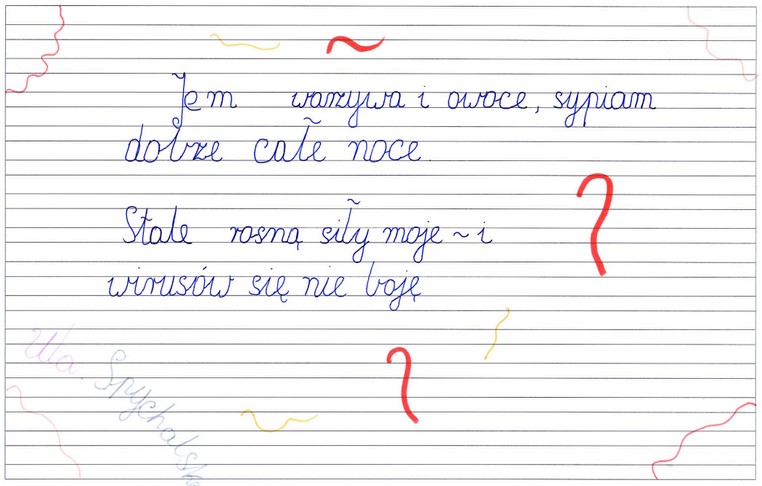 Jem warzywa i owoce, sypiam
dobrze całe noce.
Stale rosną siły moje ~ i
wirusów się nie boję
Ula. Spychalsk